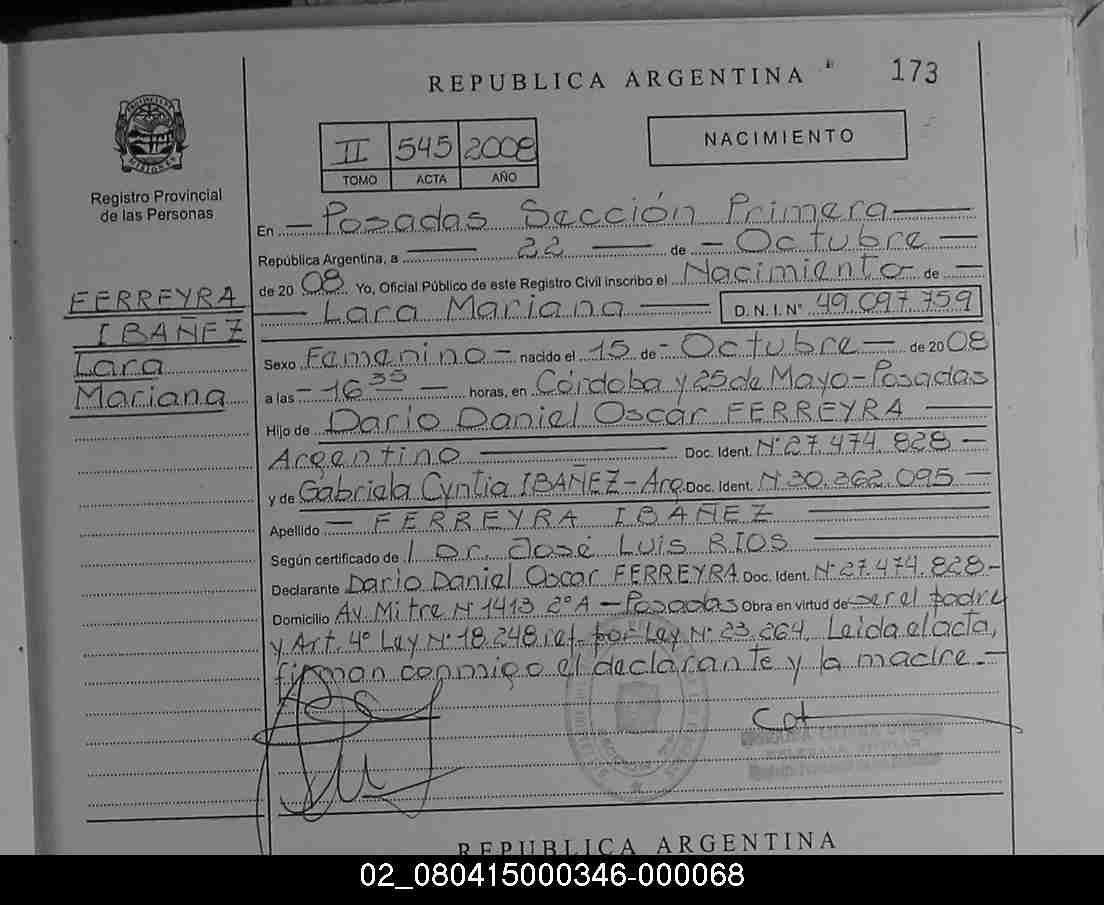 REPUBLICA ARGENTINA
173
II 545 2008
TOMO ACTA AÑO
NACIMIENTO
Registro Provincial
de las Personas
FERREYRA
IBAÑEZ
Lara
Mariana
En — Posadas Sección Primera —
República Argentina, a — 22 — de — Octubre —
de 2008 Yo, Oficial Público de este Registro Civil inscribo el Nacimiento — de —
— Lara Mariana — D.N.I. N° 49.097.759
Sexo Femenino — nacido el 15 de — Octubre — de 2008
a las — 16 35 — horas, en Córdoba y 25 de Mayo — Posadas
Hijo de Dario Daniel Oscar FERREYRA —
Argentino — Doc. Ident. N° 27.474.828 —
y de Gabriela Cyntia IBAÑEZ — Arg. Doc. Ident. N° 30.362.095 —
Apellido — FERREYRA IBAÑEZ —
Según certificado de / Dr. José Luis RIOS —
Declarante Dario Daniel Oscar FERREYRA Doc. Ident. N° 27.474.828 —
Domicilio Av. Mitre N° 1413 2° A — Posadas Obra en virtud de ser el padre
y Art. 4° Ley N° 18.248 ref. por Ley N° 23.264. Leida el acta,
firman conmigo el declarante y la madre. —
REPUBLICA ARGENTINA
02_080415000346-000068